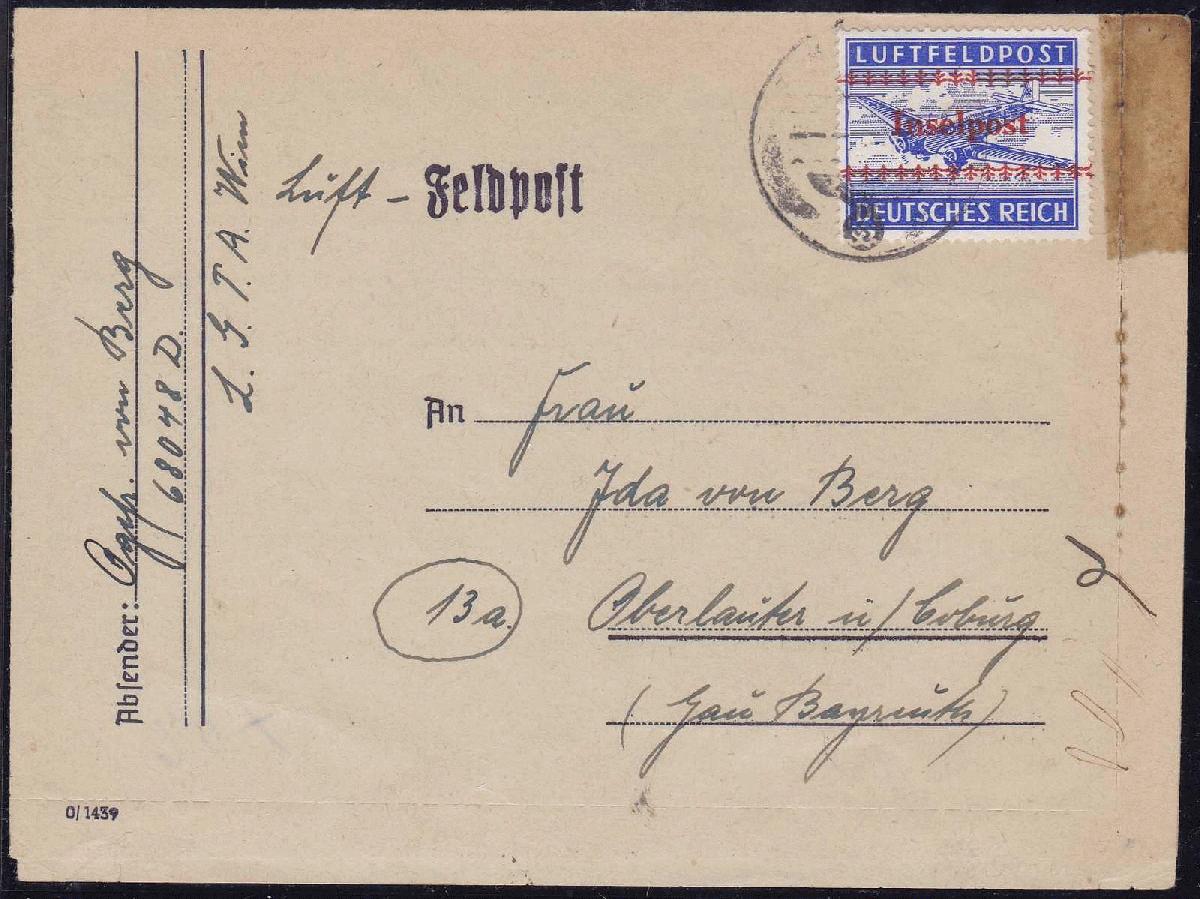 LUFTFELDPOST
Inselpost
DEUTSCHES REICH
Luft - Feldpost
An Frau
Ida von Berg
13a Oberlauter ü/ Coburg
(Gau Bayreuth)
Absender: von Berg
68048 D.
L. G. P. A. Wien
0/1439